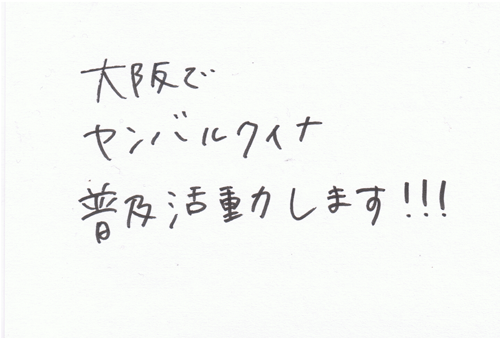 大阪で
ヤンバルクイナ
普及活動します!!!